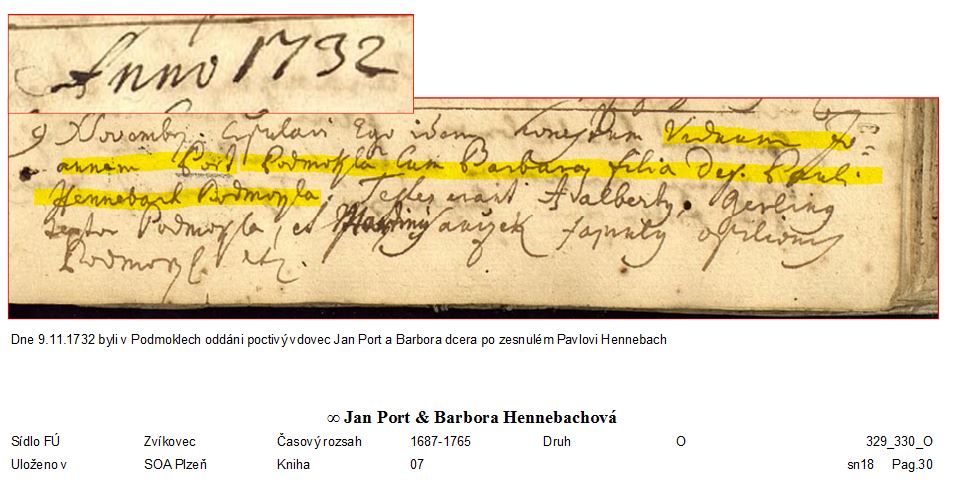 Anno 1732
9 Novembr: Copulavi Ego idem honestum Viduum Jo-
annem Port Podmokla Cum Barbara filia Def. Pauli
Hennebach Podmokla, Testes erant Adalberty, Gerling
Podmokla, et
Dne 9.11.1732 byli v Podmoklech oddáni poctivý vdovec Jan Port a Barbora dcera po zesnulém Pavlovi Hennebach
∞ Jan Port & Barbora Hennebachová
Sídlo FÚ Zvíkovec Časový rozsah 1687-1765 Druh O 329_330_O
Uloženo v SOA Plzeň Kniha 07 sn18 Pag.30